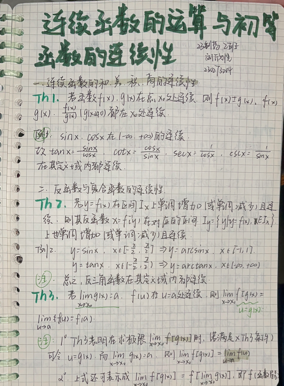 连续函数的运算与初等
函数的连续性
一、连续函数的和、差、积、商的连续性
Th1. 若函数f(x), g(x)在点x₀处连续, 则f(x)±g(x), f(x)·
g(x), f(x)/g(x) (g(x₀)≠0) 都在x₀处连续
sinx, cosx 在(-∞,+∞)内连续
故 tanx = sinx/cosx cotx = cosx/sinx secx = 1/cosx cscx = 1/sinx
在其定义域内都连续
二、反函数与复合函数的连续性
Th2. 若y=f(x)在区间Ix上单调增加(或单调减少)且连
续, 则其反函数x=f⁻¹(y)在对应的区间Iy={y|y=f(x), x∈Ix}
上也单调增加(或单调减少)且连续
y=sinx, x∈[-π/2, π/2] ⇒ y=arcsinx, x∈[-1,1]
y=tanx x∈(-π/2, π/2) ⇒ y=arctanx, x∈(-∞,+∞)
注: 总之, 反三角函数在其定义域内都连续
Th3. 若 lim g(x)=a, f(u)在u=a处连续, 则 lim f[g(x)] =
lim f(u) = f(a)
u→a
注 1° Th3表明在求极限 lim f[g(x)] 时, 若满足
可令 u=g(x), 而 lim g(x)=a, 则 lim f[g(x)] = lim f(u)
2° 上式还可表示成 lim f[g(x)] = f[lim g(x)], 即f(函数